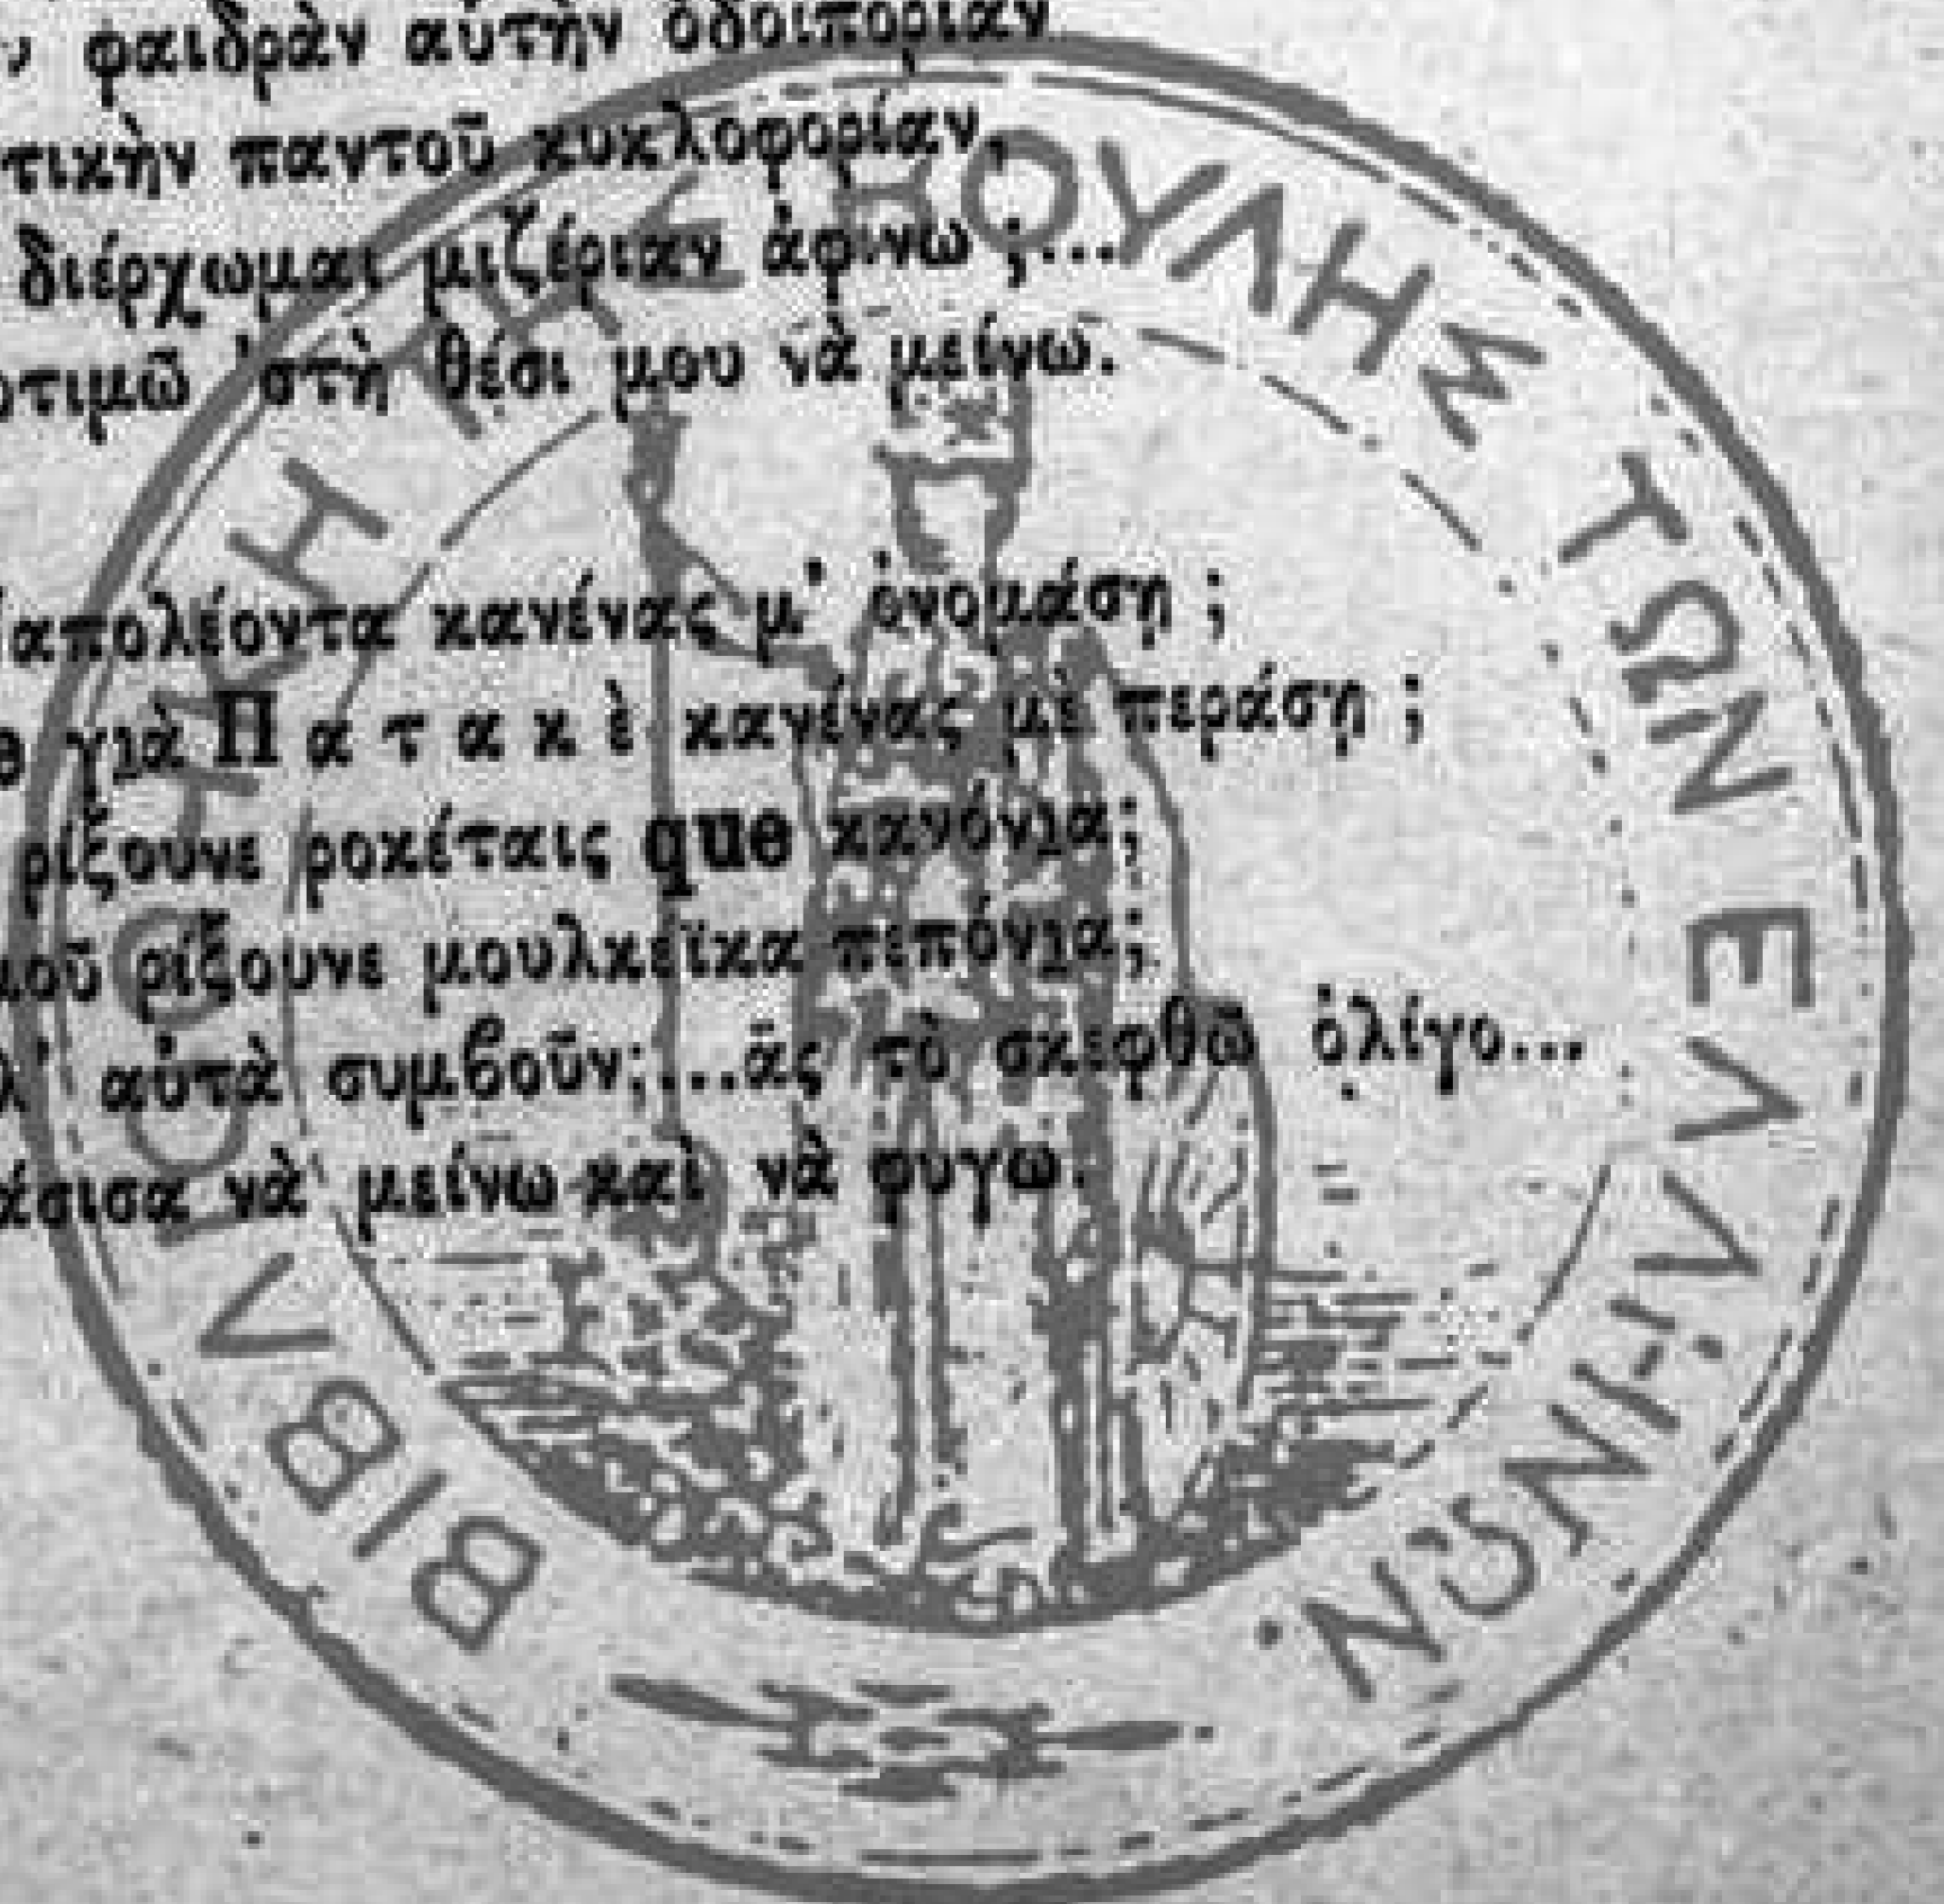 φαιδρὰν αὐτὴν ὁδοιπορίαν
τικὴν παντοῦ κυκλοφορίαν,
διέρχωμαι μιζέριαν ἀφίνω ;...
οτιμῶ 'στὴ θέσι μου νὰ μείνω.
απολέοντα κανένας μ' ὀνομάσῃ ;
γιὰ Πατακὲ κανένας μὲ περάσῃ ;
ρίξουνε ροκέταις que κανόνια;
μοῦ ρίξουνε μουλκέϊκα πεπόνια;
λ' αὐτὰ συμβοῦν;...ἂς τὸ σκεφθῶ ὀλίγο...
άσισα νὰ μείνω καὶ νὰ φύγω.
ΒΙΒΛΙΟΘΗΚΗ ΤΗΣ ΒΟΥΛΗΣ ΤΩΝ ΕΛΛΗΝΩΝ